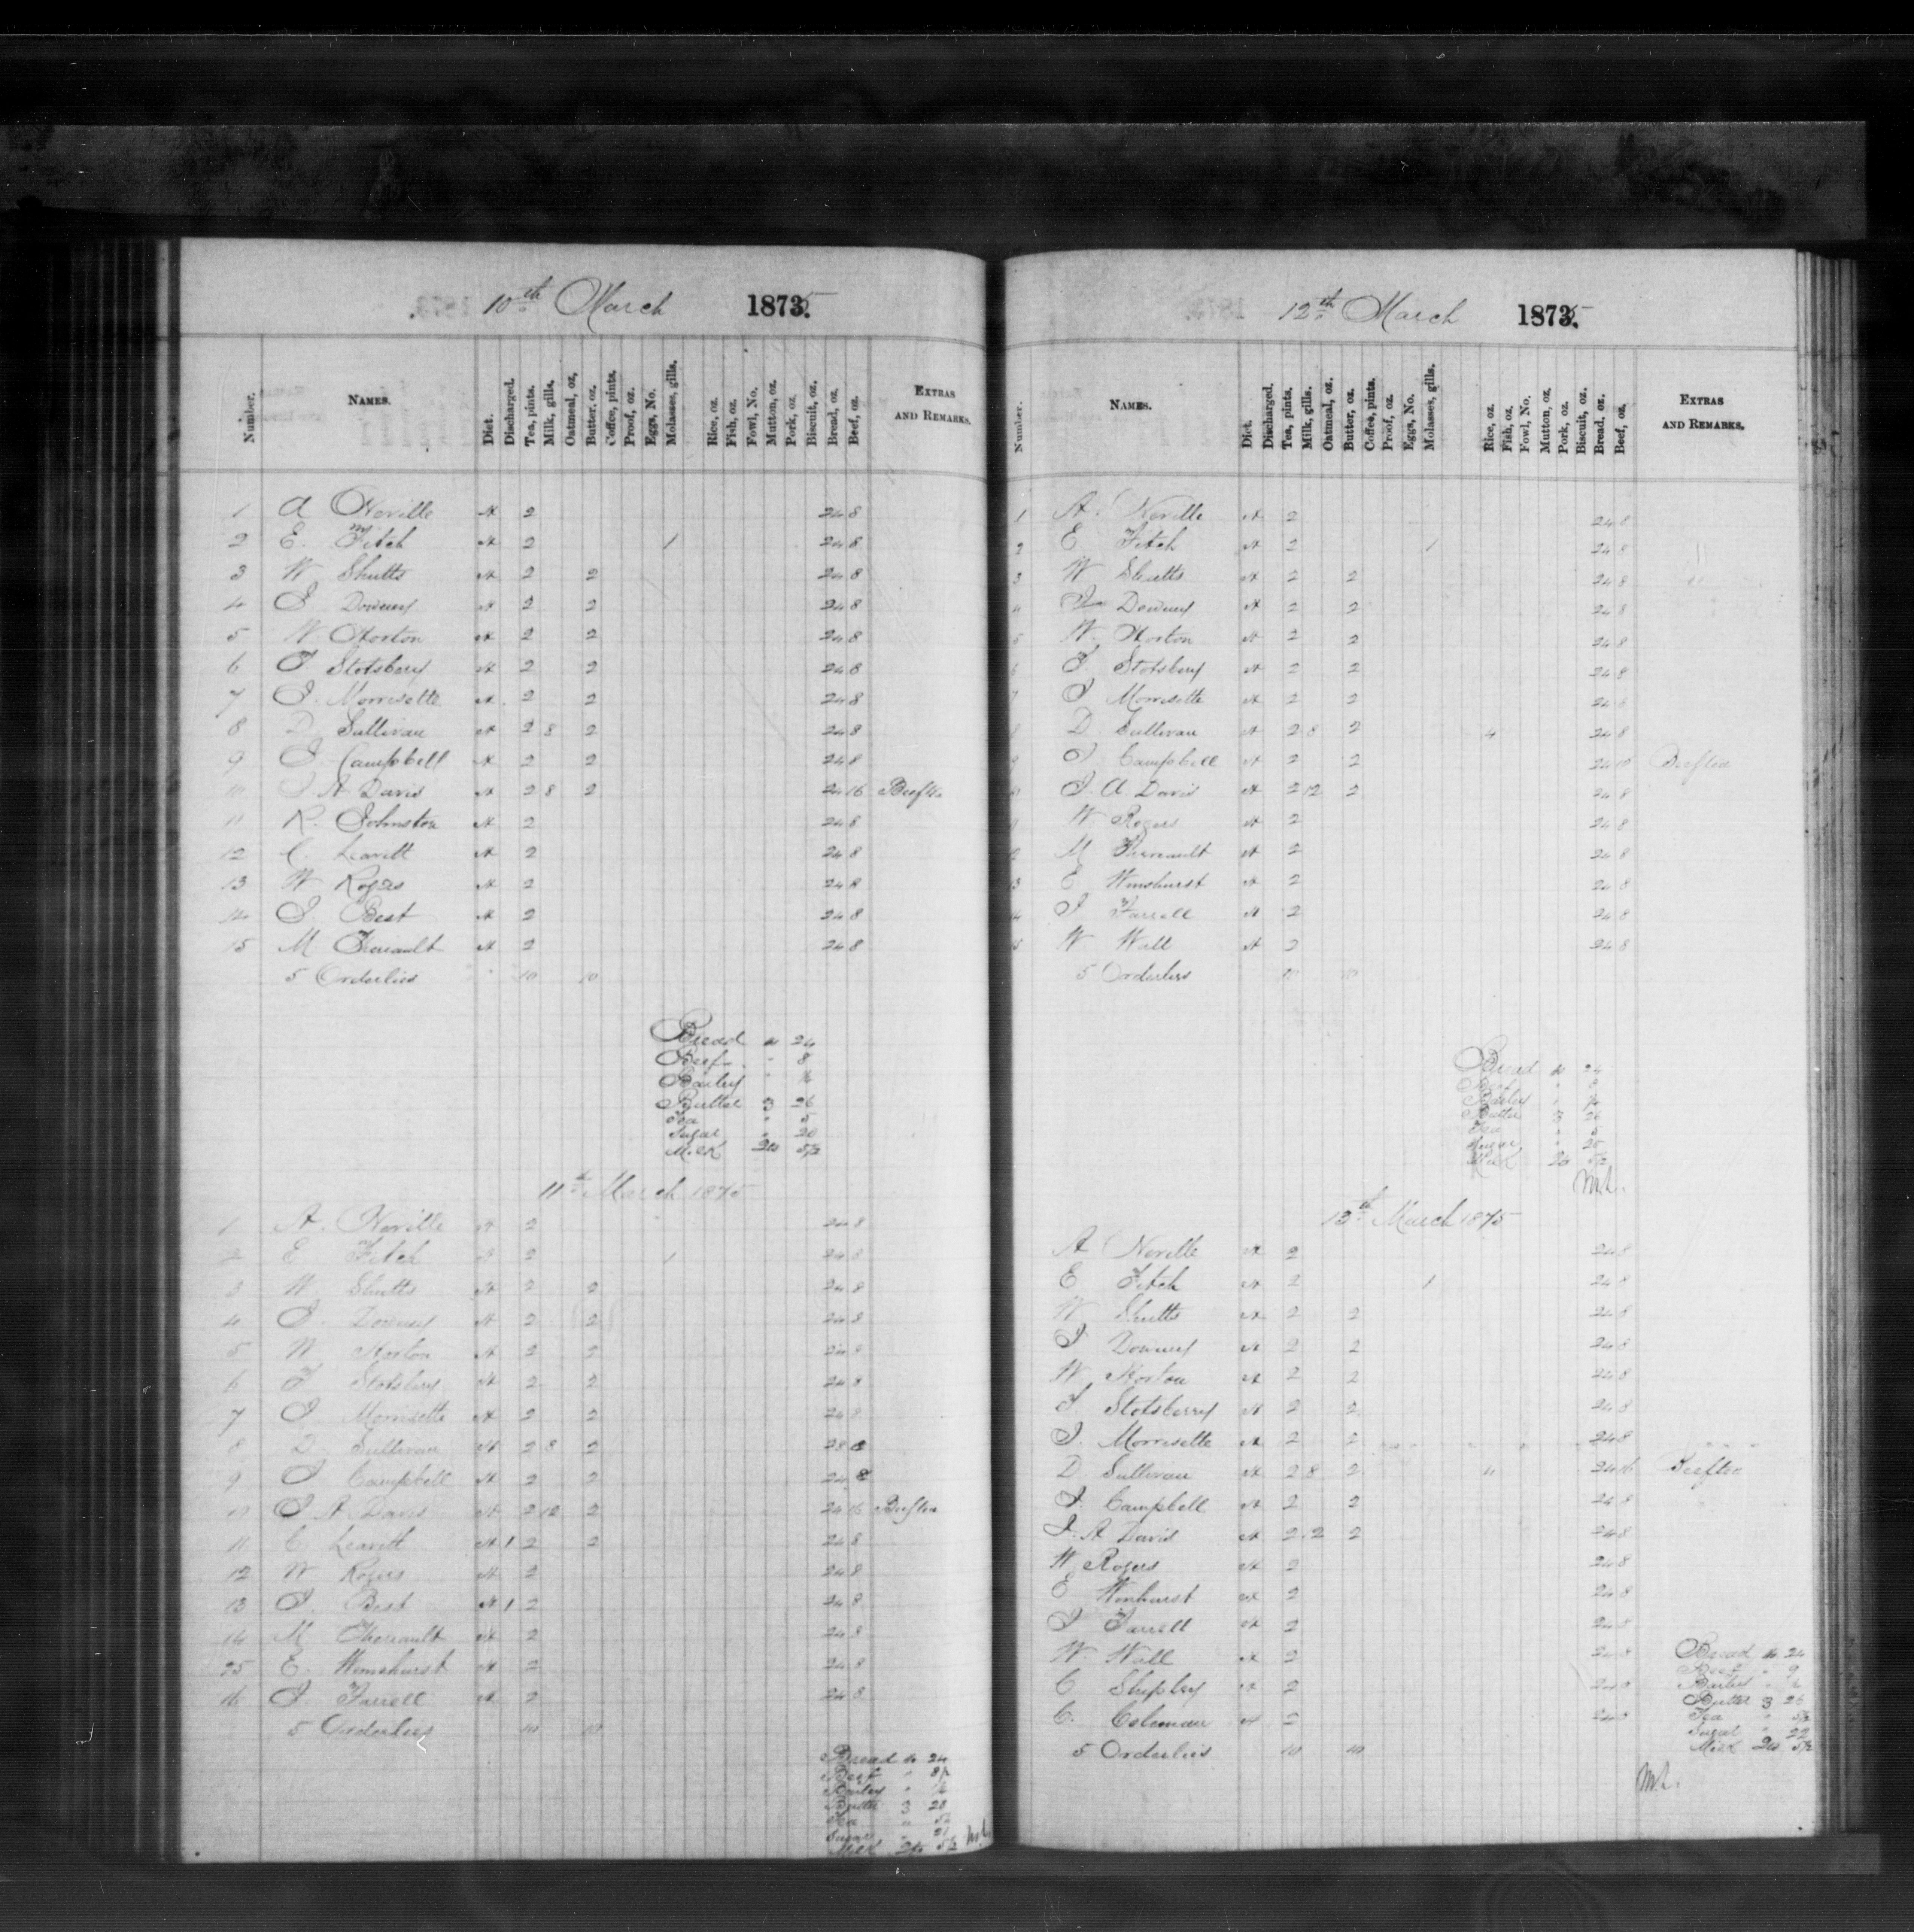 10th March 1875.
Number. NAMES. Diet. Discharged. Tea, pints. Milk, gills. Oatmeal, oz. Butter, oz. Coffee, pints. Proof, oz. Eggs, No. Molasses, gills. Rice, oz. Fish, oz. Fowl, No. Mutton, oz. Pork, oz. Biscuit, oz. Bread, oz. Beef, oz. EXTRAS AND REMARKS.
1 A Neville 2 24 8
2 E. Fitch 2 1 24 8
3 W Shutts 2 2 24 8
4 J Downey 2 2 24 8
5 W Horton 2 2 24 8
6 T Stotsbery 2 2 24 8
7 J. Morrisette 2 2 24 8
8 D. Sullivan 2 8 2 24 8
9 J. Campbell 2 2 24 8
10 J. A. Davis 2 8 2 24 16 Beeftea
11 R. Johnston 2 24 8
12 C. Leavitt 2 24 8
13 W Rogers 2 24 8
14 J. Best 2 24 8
15 M Theriault 2 24 8
5 Orderlies 10 10
Bread 24
Beef " 8
Barley "
Butter 3 26
Tea " 5
Sugar " 20
Milk
11th March 1875
1 A. Neville 2 24 8
2 E Fitch 2 1 24 8
3 W. Shutts 2 2 24 8
4 J. Downey 2 2 24 8
5 W Horton 2 2 24 8
6 T Stotsbery 2 2 24 8
7 J Morrisette 2 2 24 8
8 D. Sullivan 2 8 2
9 J Campbell 2 2 24 8
10 J A Davis 2 12 2 24 16 Beeftea
11 C. Leavitt 1 2 2 24 8
12 W Rogers 2 24 8
13 J. Best 1 2 24 8
14 M Theriault 2 24 8
15 E. Wimshurst 2 24 8
16 J. Farrell 2 24 8
5 Orderlies 10 10
Bread 24
Beef "
Barley "
Butter 3 28
Tea "
Sugar
Milk
12th March 1875.
Number. NAMES. Diet. Discharged. Tea, pints. Milk, gills. Oatmeal, oz. Butter, oz. Coffee, pints. Proof, oz. Eggs, No. Molasses, gills. Rice, oz. Fish, oz. Fowl, No. Mutton, oz. Pork, oz. Biscuit, oz. Bread, oz. Beef, oz. EXTRAS AND REMARKS.
1 A. Neville 2 24 8
2 E Fitch 2 1 24 8
3 W Shutts 2 2 24 8
4 J Downey 2 2 24 8
5 W. Horton 2 2 24 8
6 T. Stotsbery 2 2 24 8
7 J Morrisette 2 2 24 8
8 D Sullivan 2 8 2 4 24 8
9 J Campbell 2 2 24 Beeftea
10 J. A Davis 2 12 2 24 8
11 W Rogers 2 24 8
12 M Theriault 2 24 8
13 E Wimshurst 2 24 8
14 J Farrell 2 24 8
15 W Wall 2 24 8
5 Orderlies 10 10
Bread 24
Beef "
Barley "
Butter 3 26
Tea " 5
Sugar " 20
Milk
13th March 1875
A Neville 2 24 8
E Fitch 2 1 24 8
W Shutts 2 2 24 8
J Downey 2 2 24 8
W Horton 2 2 24 8
T Stotsberry 2 2 24 8
J. Morrisette 2 2 24 8
D. Sullivan 2 8 2 4 24 16 Beeftea
J. Campbell 2 2 24 8
J. A Davis 2 2 24 8
W Rogers 2 24 8
E Wimhurst 2 24 8
J Farrell 2 24 8
W Wall 2 24 8
C Shepley 2 24 8
C. Coleman 2 24 8
5 Orderlies 10 10
Bread 24
Beef " 9
Barley "
Butter 3 26
Tea "
Sugar " 22
Milk